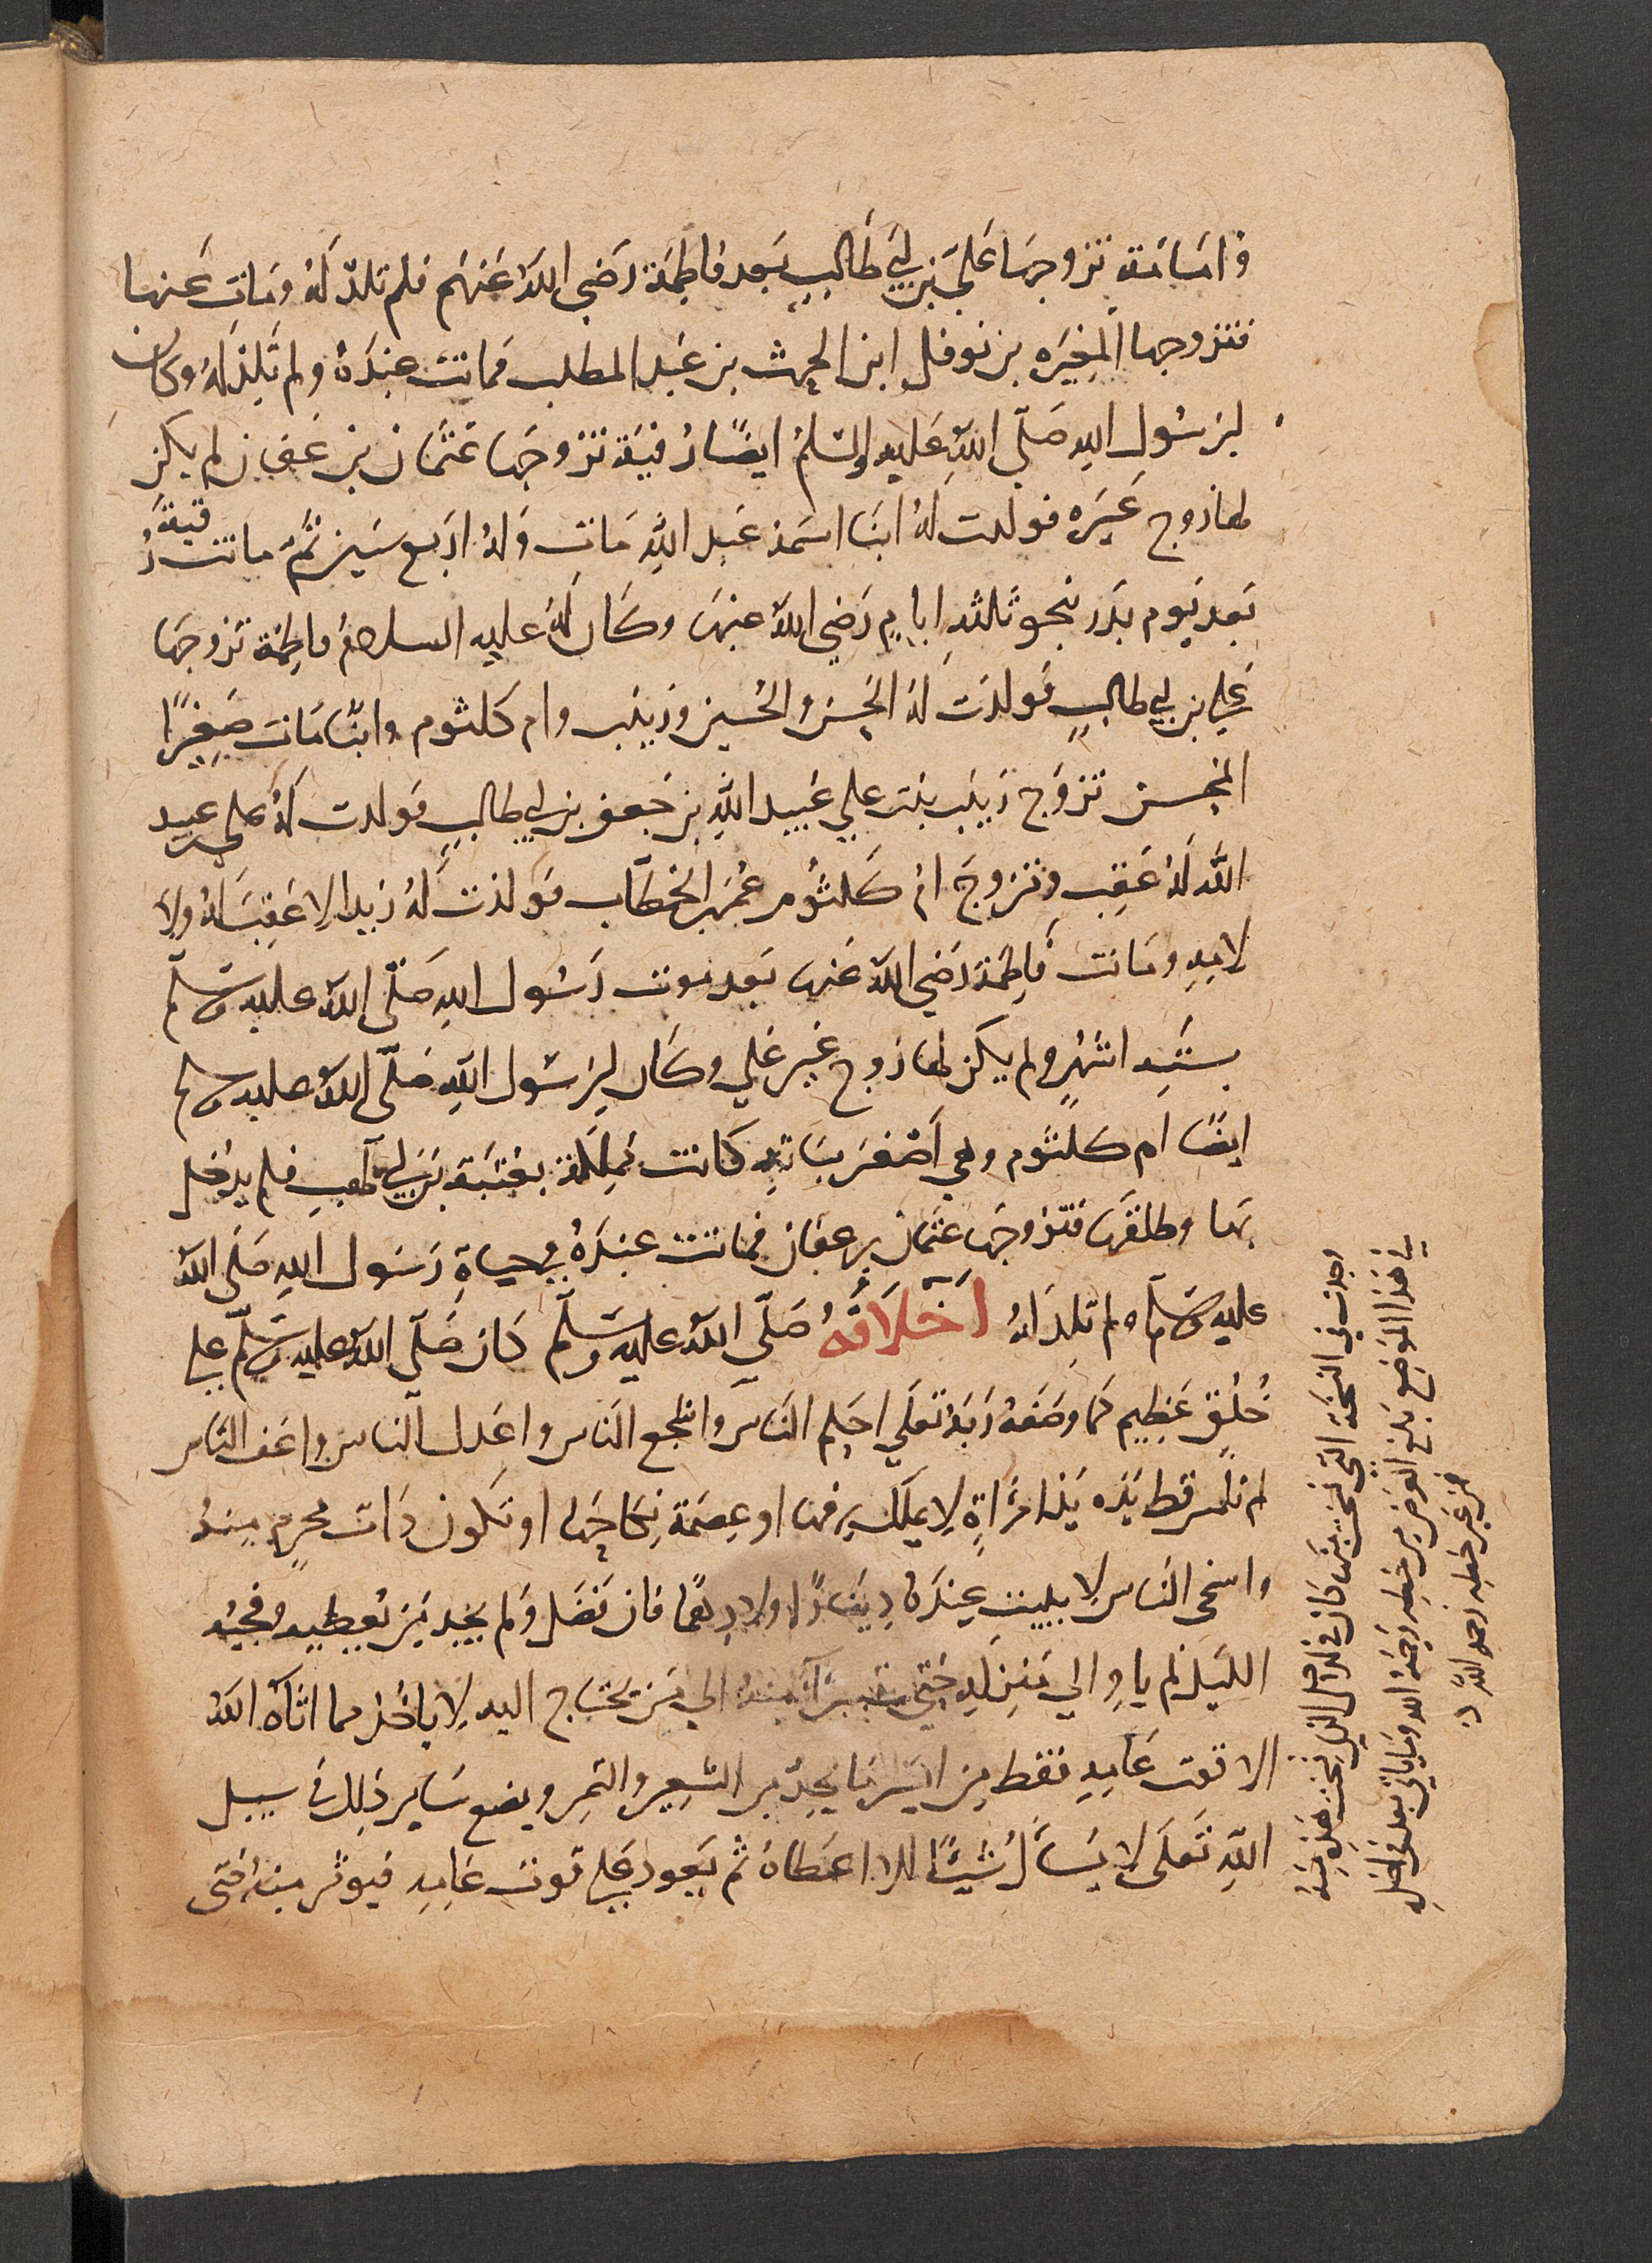 وَامَامَة تزوجهَا عَلي بن ابي طَالبٍ بَعد فاطِمَة رَضي اللهُ عَنهم فلم تلد لَهُ وَمَات عَنها
فتزوجها المغيَره بن نوفل ابن الحرث بن عَبد المطلب فماتت عندَهُ ولم تَلد لهُ وكان
لرَسُولِ اللهِ صَلّى اللهُ عَليه والسّلمُ ايضًا رُقيَة تزوجهَا عَثمان بن عَفان لم يكن
لها زوج غيَره فولدت لهُ ابنًا اسمَهُ عَبد اللهِ مَات وَلهُ اربَع سنين ثمّ ماتت رُقيَةُ
بَعد يَوم بَدر بنحو ثلثه ايامٍ رَضي اللهُ عنهَا وكَان لَهُ عليه السلامُ فاطِمَة تزوجهَا
عَلي بن ابي طالبٍ فولدَت لهُ الحَسَن والحُسين وزينب وام كلثوم وابنًا مَات صَغِيرًا
المحسن تزوّج زَينَب بنت علي عُبيد اللهِ بن جَعفر بن ابي طالبٍ فولدت لَهُ علي بن عبيد
الله لَهُ عَقِب وتزوجَ ام كَلثُوم عُمَر بن الخطّاب فولدت لَهُ زيدا لا عَقِبَ لهُ ولا
لامِهِ ومَاتت فَاطِمَة رَضي اللهُ عَنها بَعد موت رَسُول اللهِ صَلّى اللهُ عليه وسَلّم
بستّهِ اشهُرٍ ولم يكن لها زوج غيرَ عَلي وكَان لِرَسُول اللهِ صَلّى اللهُ عليه وسلم
ايضًا ام كلثوم وهي اَصغَر بناتِهِ كانت مُملكة بعُتبَة بن ابي لَهبٍ فلم يدخل
بهَا وطلقَها فتزوجهَا عَثمان بن عفان فماتت عندَهُ في حياةِ رَسُول اللهِ صَلى اللهُ
عليه وسَلم ولم تلِد لهُ اَخلَاقُهُ صَلّى اللهُ عليه وسَلّم كان صَلّى اللهُ عليه وسَلّم علي
خُلُقٍ عَظِيمٍ كما وصَفهُ رَبهُ تعَلي احلم الناس واشجع الناس واعَدل الناس واعَف الناس
لم تلمس قط يَدَه يَدَ امرَاةٍ لا يملك رقها او عِصمَة نِكاحَها او تكون ذَات محرمٍ مِنهُ
واسخى الناس لا يبيت عِندَهُ دِينَارًا ولا دِرهمًا فان فَضَل وَلم يجد مَن يُعطيهِ وفجئهُ
الليَل لم ياوِ الي مَنزلِهِ حتى يتبرأ منهُ الي مَن يَحتاج اليه لا ياخُذ مما اتاهُ اللهُ
الا قوت عَامِهِ فقط مِن ايسَر مَا يجِدُ من الشعِير والتمِر ويضَع سَاير ذلِك في سبيل
اللهِ تعَلى لا يَسأَلُ شيئًا الا اعطَاهُ ثم يَعود علي قوت عَامِهِ فيوثر مِنهُ حَتى
وجدت في النسخَة التي نسخت مِنهَا كان في الاصل الذي نسخت هَذِهِ مِنهُ
في هَذا الموَضِع بَلغَ العَرض من خَطِهِ رَحِمَهُ الله ومَا ياتي بَعدَ في الاصل
من غير خَطِه رحمه اللهُ